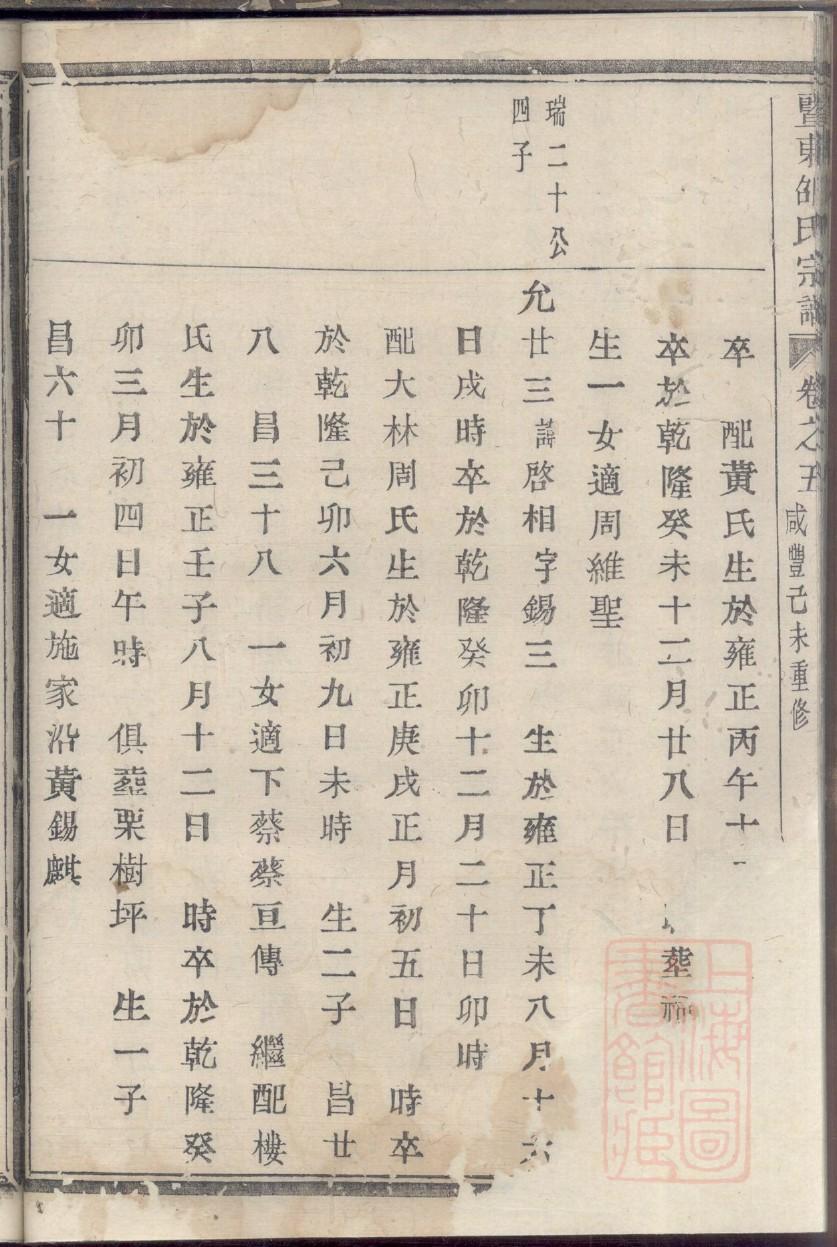 暨東邵氏宗譜 卷之五 咸豐己未重修
卒 配黃氏生於雍正丙午十
卒於乾隆癸未十二月廿八日 葬福
生一女適周維聖
瑞二十公
四子
允廿三諱啓相字錫三 生於雍正丁未八月十六
日戌時卒於乾隆癸卯十二月二十日卯時
配大林周氏生於雍正庚戌正月初五日 時卒
於乾隆己卯六月初九日未時 生二子 昌廿
八 昌三十八 一女適下蔡蔡亘傳 繼配樓
氏生於雍正壬子八月十二日 時卒於乾隆癸
卯三月初四日午時 俱葬栗樹坪 生一子
昌六十 一女適施家沿黃錫麒
上海圖
書館藏